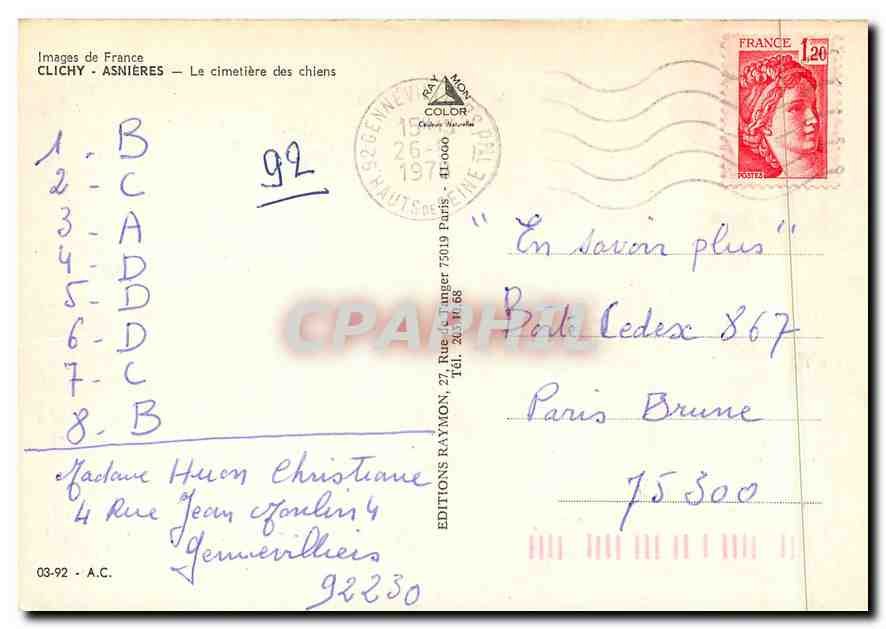 Images de France
CLICHY - ASNIÈRES — Le cimetière des chiens
1 - B
2 - C
3 - A
4 - D
5 - D
6 - D
7 - C
8 - B
92
Madame Huon Christiane
4 Rue Jean Moulin 4
Gennevilliers
92230
03-92 - A.C.
RAYMON
COLOR
Couleurs Naturelles
92 GENNEVILLIERS PPAL
15
26
197
HAUTS DE SEINE
EDITIONS RAYMON, 27, Rue de Tanger 75019 Paris - 41-000
Tél. 203.10.68
FRANCE 1,20
POSTES
"En savoir plus"
Boîte Cedex 867
Paris Brune
75300
CPAPHIL